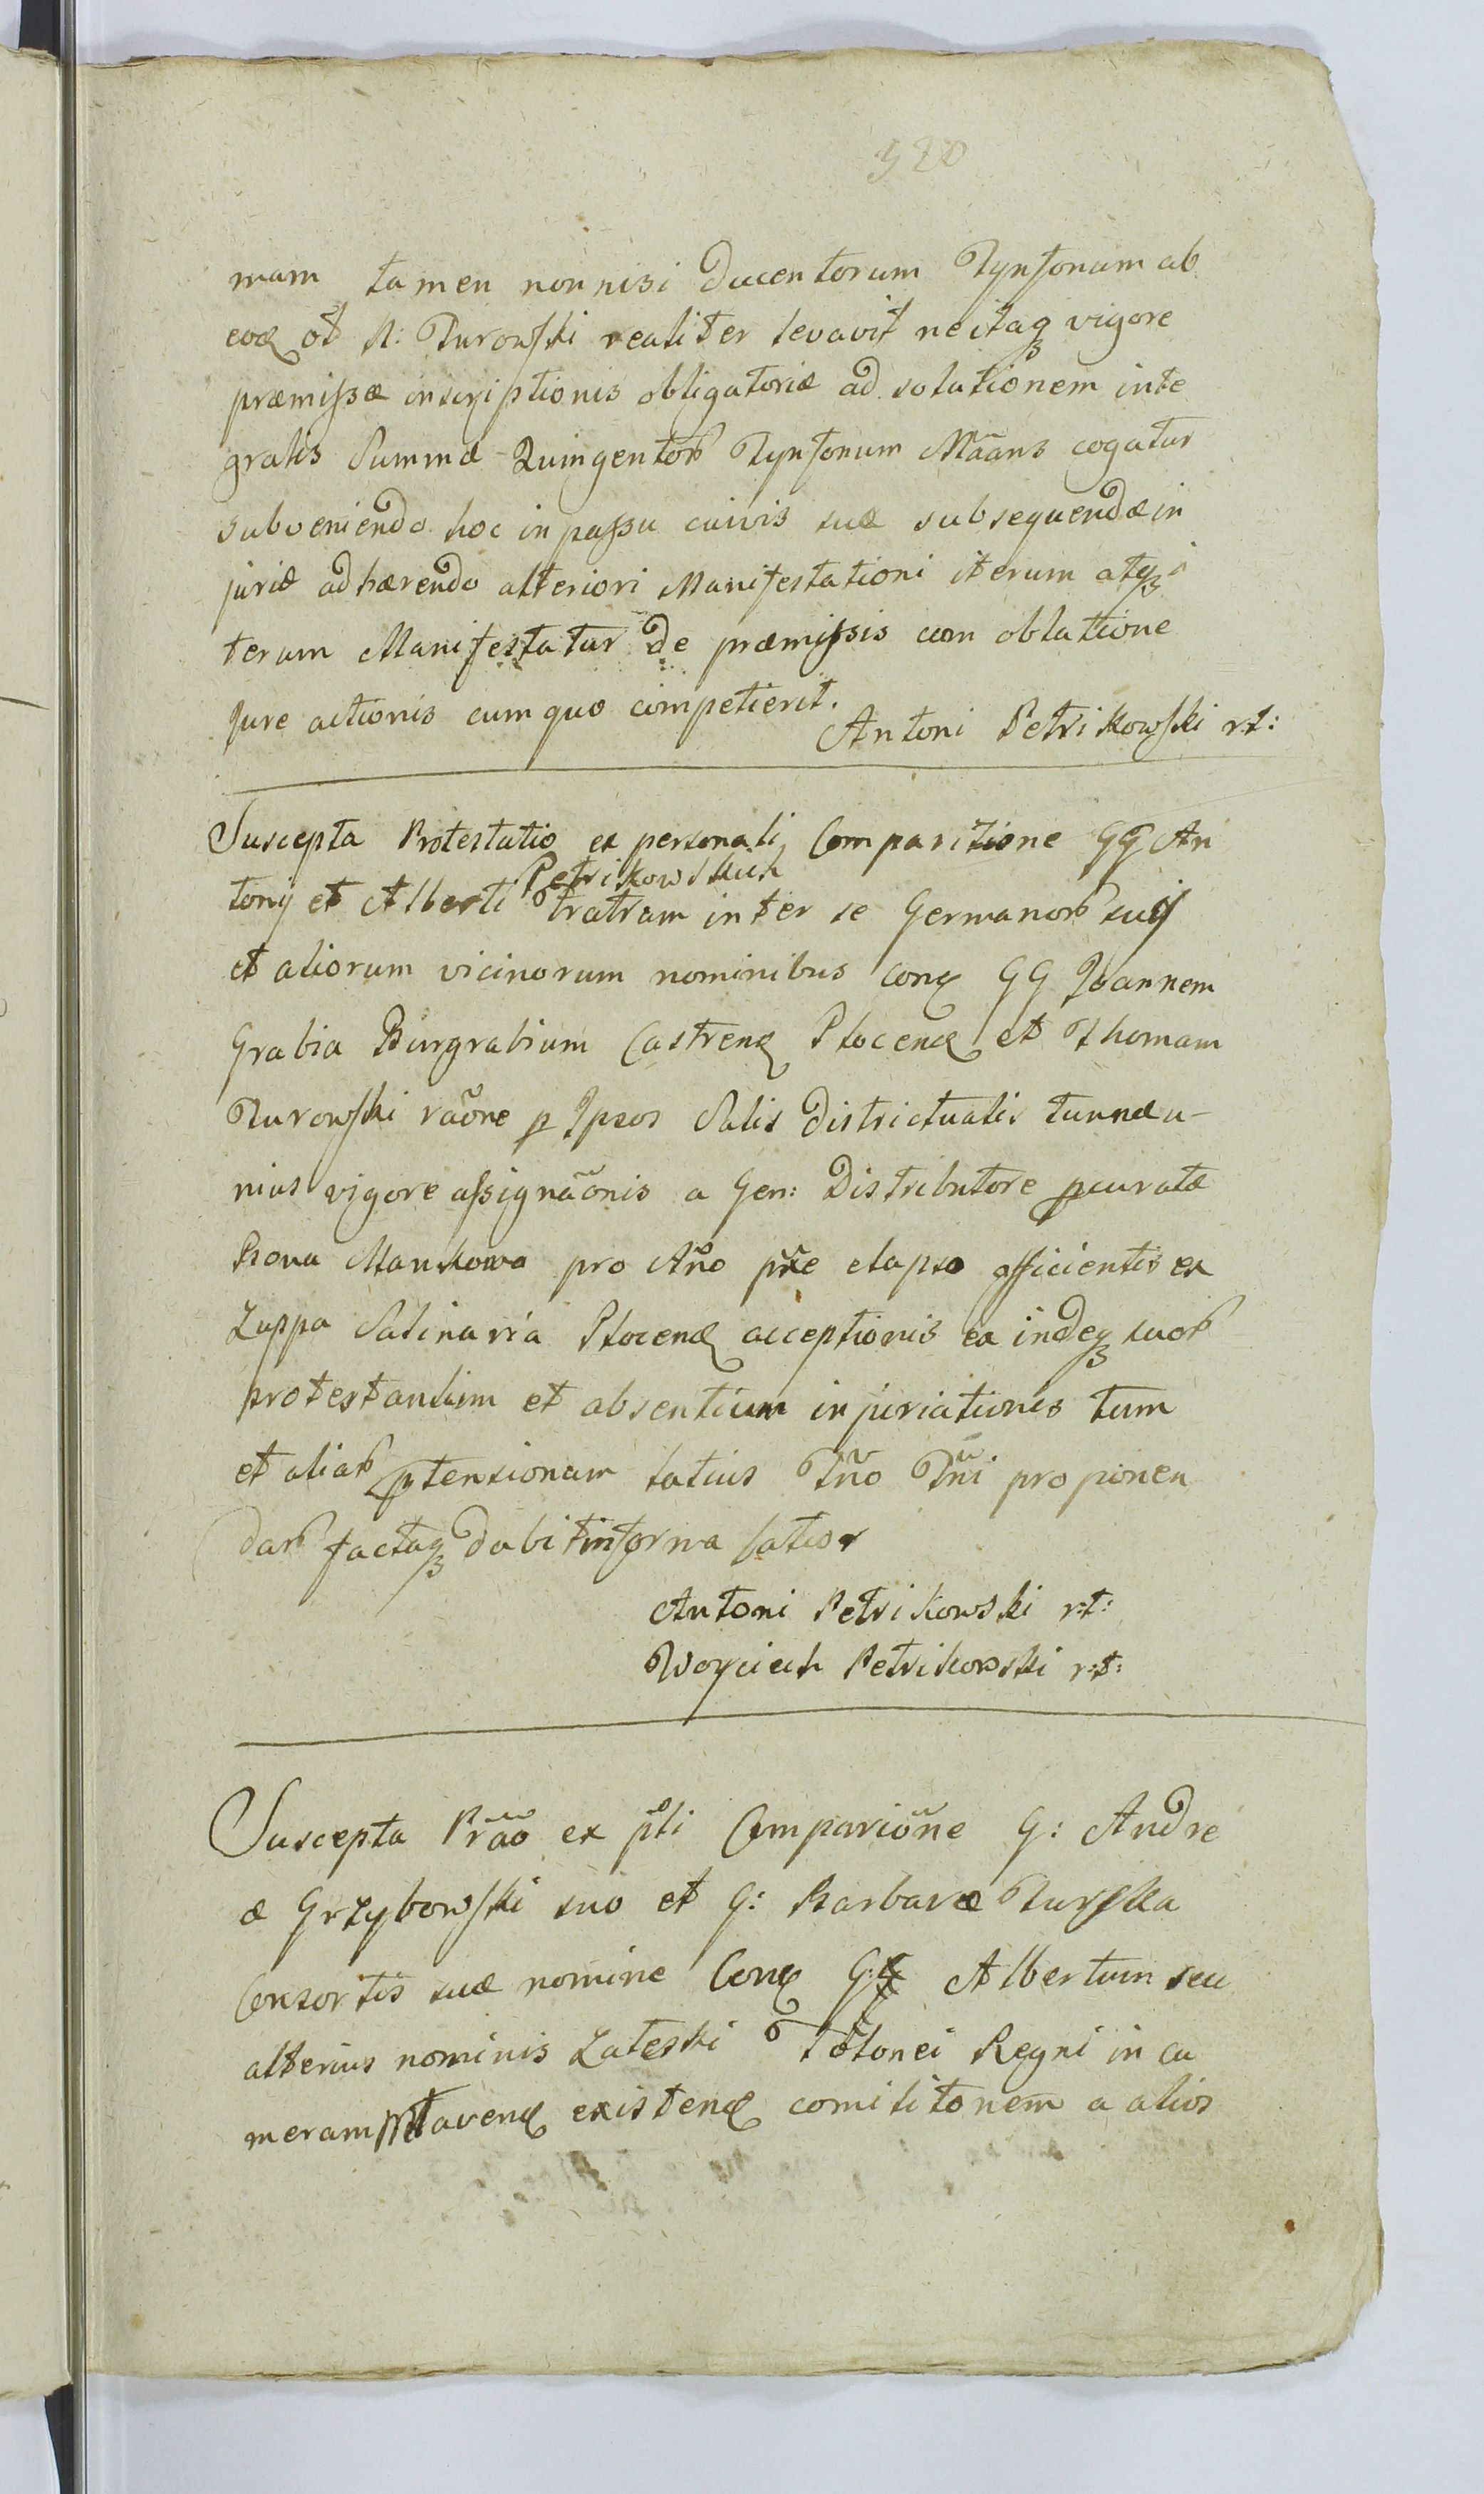 520
mam tamen nonnisi Ducentorum Tynfonum ab
eod ol N: Turowski realiter levavit ne itaq vigore
præmissæ inscriptionis obligatoriæ ad solutionem inte
gralis Summæ Quingentor Tynfonum Mãans cogatur
subveniendo hoc in passu cuivis suæ subsequendæ in
juriæ adhærendo alteriori Manifestationi iterum atq i
terum Manifestatur De præmissis cum oblatione
Jure actionis cum quo competierit.
Antoni Petrikowski rt:
Suscepta Protestatio ex personali Comparitione GG An
tonij et Alberti Petrikowskich fratrum inter se Germanor suis
et aliorum vicinorum nominibus con GG Joannem
Grabia Burgrabium Castren Plocen et Thomam
Turowski raõne p Ipsos Salis Districtualis tunnæ u-
nius vigore assignãonis a Gen: Distributore pcuratæ
Bona Mankowo pro Añno pñe elapso afficientis ex
Zuppa Salinaria Plocen acceptionis ea indeq suor
protestantium et absentium injuriationis tum
et aliar ptensionum latius Tño Tñi proponen
dar factaq dabitin forma latior
Antoni Petrikowski r:t:
Woyciech Petrikowski r:t:
Suscepta Prãao ex pli Compariõne G: Andre
æ Grzybowski suo et G: Barbaræ Turska
Consortis suæ nomine Con G Albertum seu
alterius nominis Zateski Telonei Regni in ca
meram Mlaven existen comilitonem a alios